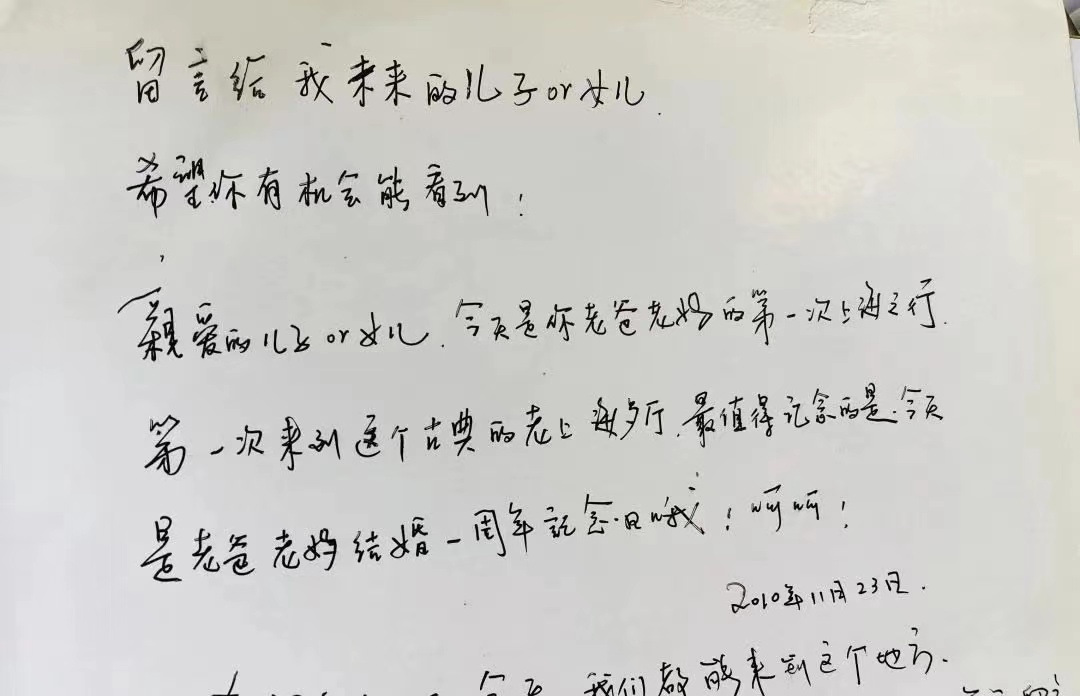 留言给我未来的儿子or女儿.
希望你有机会能看到!
親爱的儿子or女儿.今天是你老爸老妈的第一次上海之行.
第一次来到这个古典的老上海歺厅.最值得记念的是.今天
是老爸老妈结婚一周年記念日哦!呵呵!
2010年11月23日.
我们都能来到这个地方.